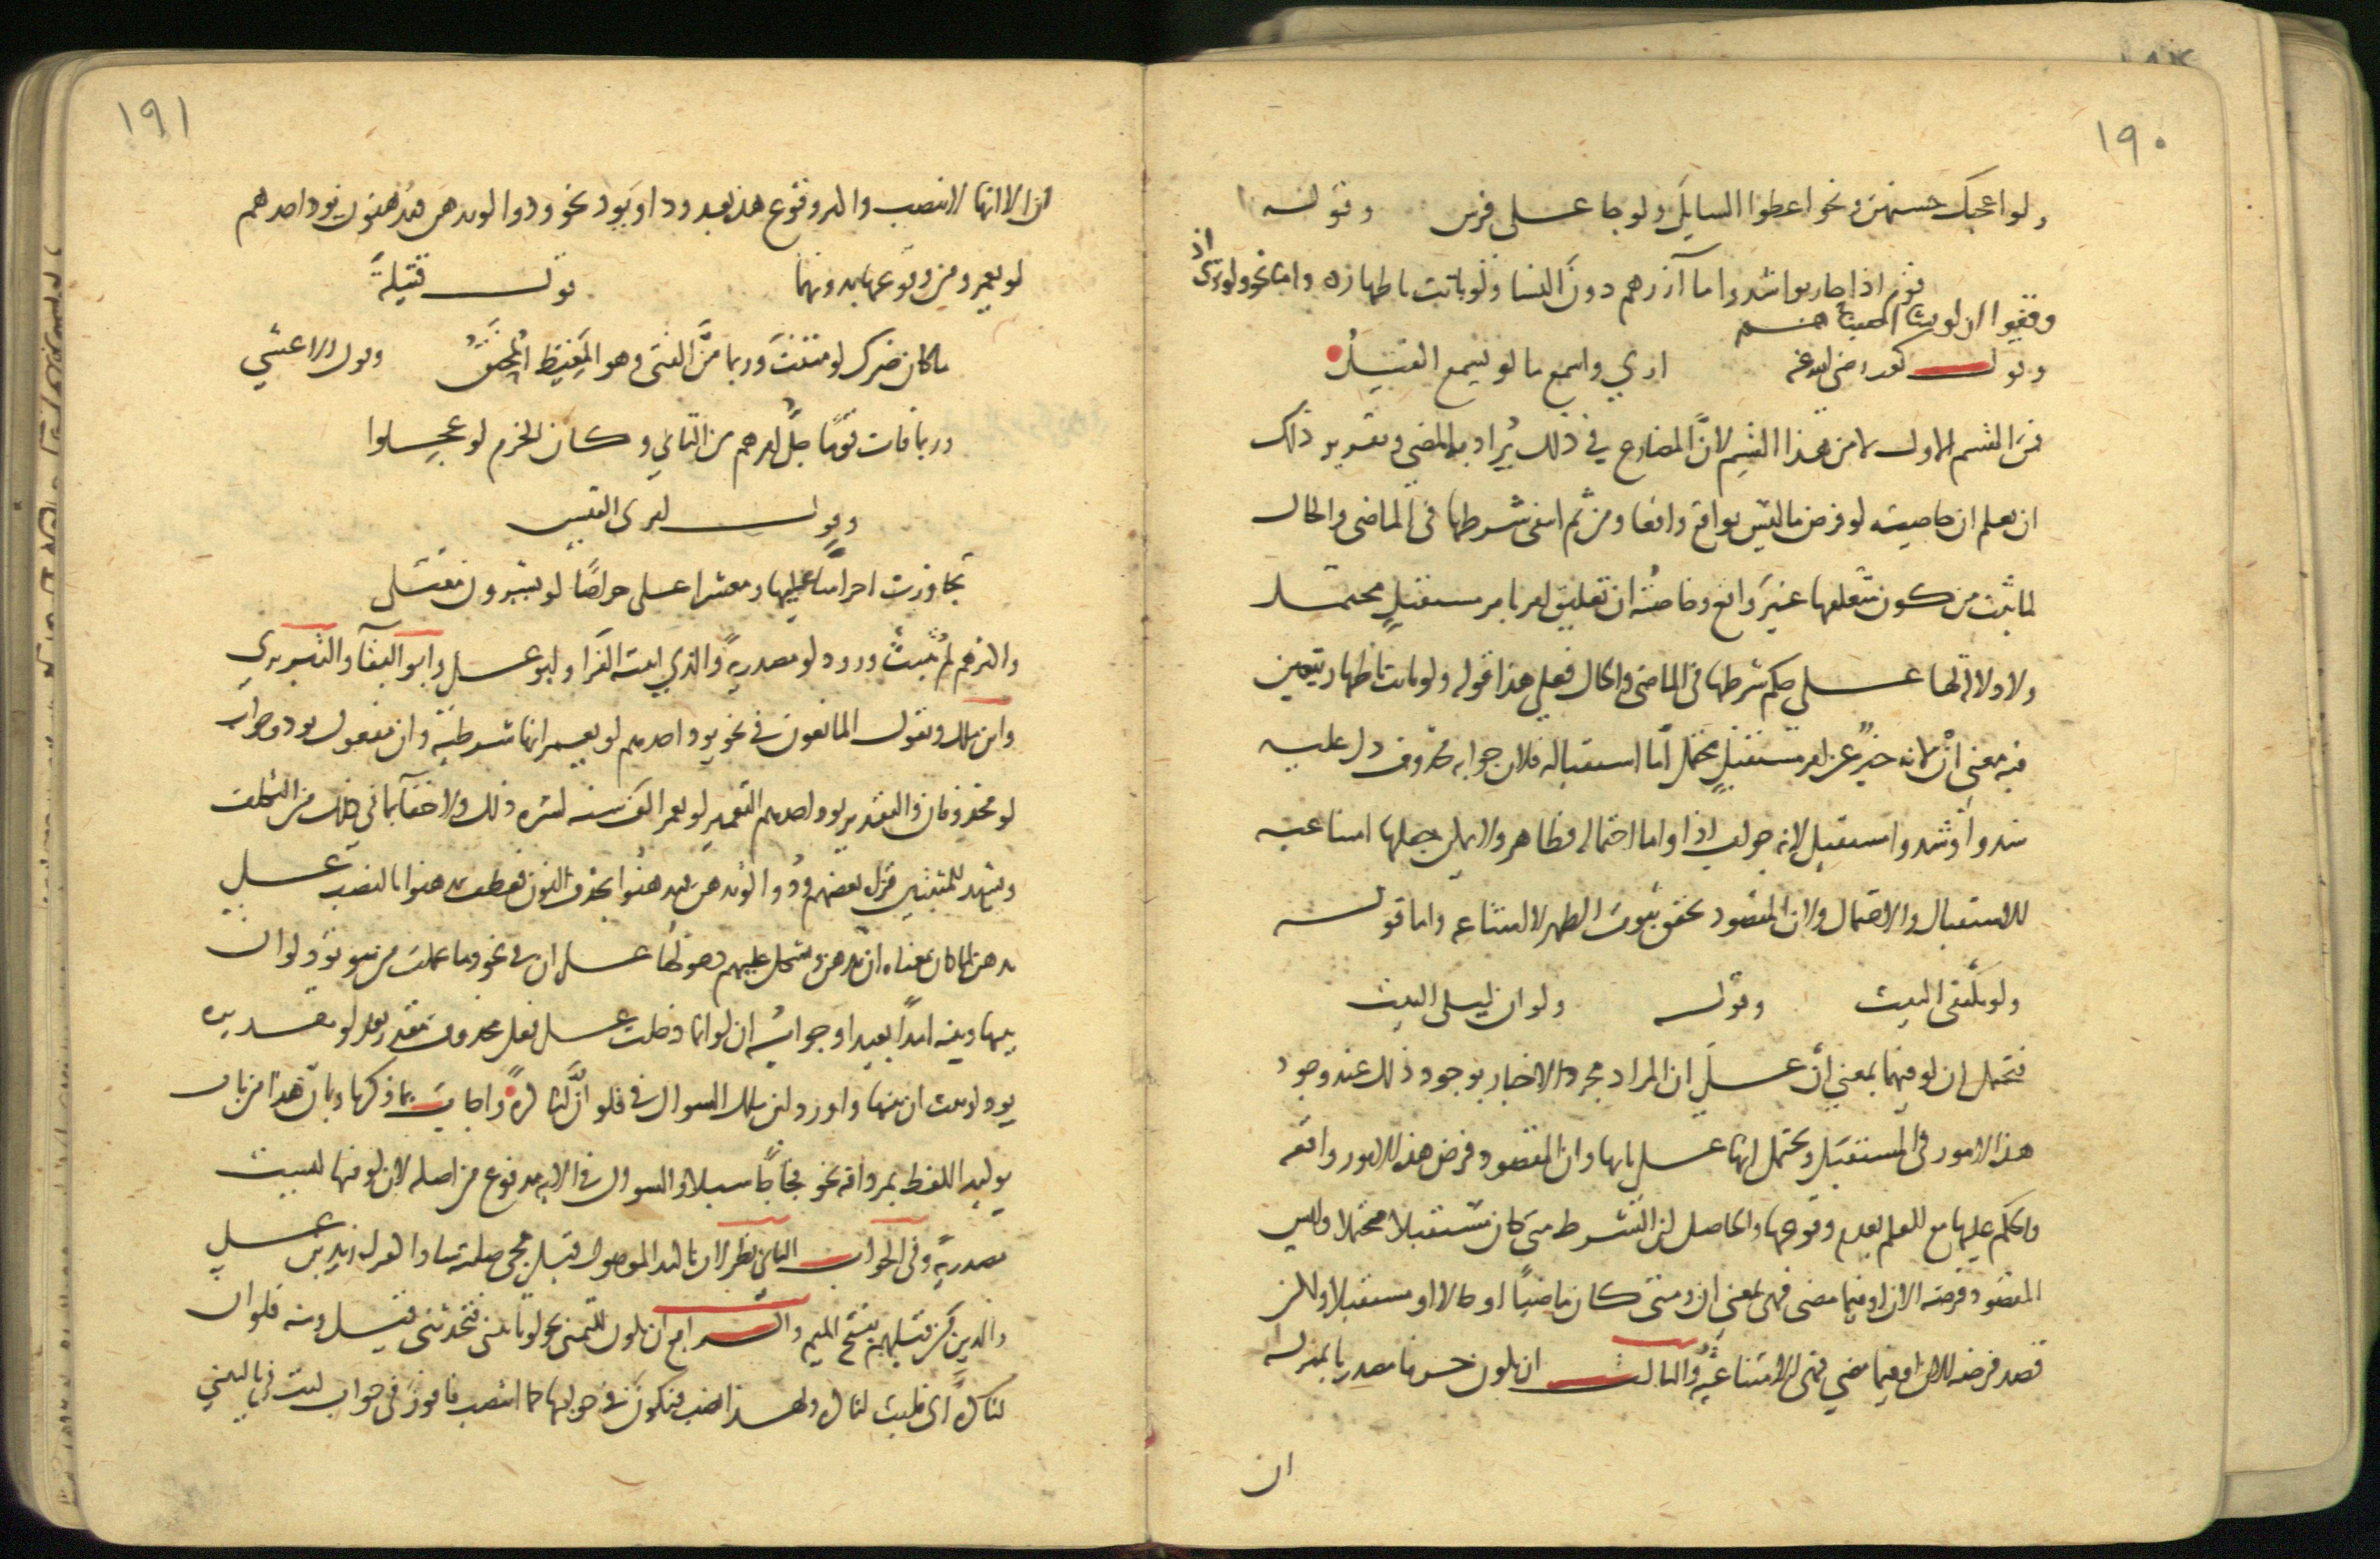 ١٩٠
ولو اعجبك حسنهن ونحو اعطوا السايل ولو جا على فرس وقوله
قوم اذا حاربوا شدوا مآزرهم دون النسا ولو باتت باطهار واما نحو ولو ترى اذ
وقفوا ان لو نشاء اصبناهم
وقول كعب رضي الله عنه ارى واسمع ما لو يسمع الفيل
فمن القسم الاول لا من هذا القسم لان المضارع في ذلك يراد به المضي وتقرير ذلك
ان يعلم ان خاصية لو فرض ما ليس بواقع واقعا ومن ثم انتفى شرطها في الماضي والحال
لما ثبت من كون متعلقها غير واقع وخاصة ان تعليق امر بامر مستقبل محتمل
ولا دلالة لها على حكم شرطها في الماضي والحال فعلى هذا قوله ولو باتت باطهار يتعين
فيه معنى ان لانه خبر عن امر مستقبل محتمل اما استقباله فلان جوابه محذوف دل عليه
شدوا وشدوا مستقبل لانه جواب اذا واما احتماله فظاهر ولا يمكن جعلها امتناعية
للاستقبال والاحتمال ولان المقصود تحقق ثبوت الطهر لا امتناعه واما قوله
ولو تلتقي البيت وقوله ولو ان ليلى البيت
فيحتمل ان لو فيهما بمعنى ان على ان المراد مجرد الاخبار بوجود ذلك عند وجود
هذه الامور في المستقبل ويحتمل انها على بابها وان المقصود فرض هذه الامور واقعة
والحكم عليها مع العلم بعدم وقوعها والحاصل ان الشرط متى كان مستقبلا محتملا وليس
المقصود فرضه الان او فيما مضى فهي بمعنى ان ومتى كان ماضيا او حالا او مستقبلا ولكن
قصد فرضه الان او فيما مضى فهي الامتناعية والثالث ان يكون حرفا مصدريا بمنزلة
ان
١٩١
ان الا انها لا تنصب واكثر وقوع هذه بعد ود او يود نحو ودوا لو تدهن فيدهنون يود احدهم
لو يعمر ومن وقوعها بدونهما قول قتيلة
ما كان ضرك لو مننت وربما من الفتى وهو المغيظ المحنق وقول الاعشى
وربما فات قوما جل امرهم من التاني وكان الحزم لو عجلوا
وقول امرئ القيس
تجاوزت احراسا عليها ومعشرا على حراصا لو يسرون مقتلي
واكثرهم لم يثبت ورود لو مصدرية والذي اثبته الفرا وابو على وابو البقا والتبريزي
وابن مالك ويقول المانعون في نحو يود احدهم لو يعمر انها شرطية وان مفعول يود وجواب
لو محذوفان والتقدير يود احدهم التعمير لو يعمر الف سنة لسره ذلك ولا خفا بما في ذلك من التكلف
ويشهد للمثبتين قراة بعضهم ودوا لو تدهن فيدهنوا بحذف النون فعطف يدهنوا بالنصب على
تدهن لما كان معناه ان تدهن ويشكل عليهم دخولها على ان في نحو وما عملت من سوء تود لو ان
بينها وبينه امدا بعيدا وجوابه ان لو انما دخلت على فعل محذوف مقدر بعد لو تقديره
يود لو ثبت ان بينها واورد ابن مالك السوال في فلو ان لنا كرة واجاب بما ذكرنا وبان هذا من باب
توكيد اللفظ بمرادفه نحو فجاجا سبلا والسوال في الاية مدفوع من اصله لان لو فيها ليست
مصدرية وفي الجواب الثاني نظر لان تاكيد الموصول قبل مجي صلته شاذ كقراة زيد بن على
والذين من قبلهم بفتح الميم والرابع ان يكون للتمني نحو لو تاتيني فتحدثني قيل ومنه فلو ان
لنا كرة اي فليت لنا كرة ولهذا نصب فنكون في جوابها كما انتصب فافوز في جواب ليت في يا ليتني